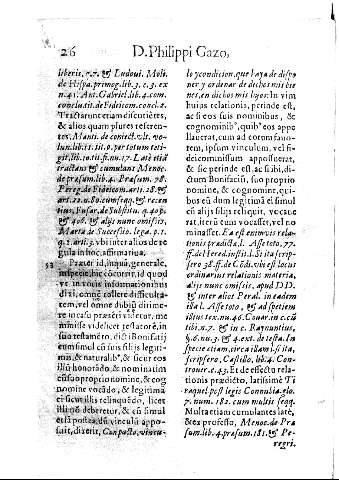 26 D. Philippi Gazo,
liberis. n. 7. & Ludoui. Moli.
de Hispa. primog. lib. 3. c. 3. ex
n. 41. Ant. Gabriel. lib. 4. com.
conclu. tit. de Fideicom. concl. 2.
Tractarunt etiam discutiētes,
& alios quam plures referen-
tes. Manti. de coniect. vlt. vo-
lun. lib. 11. tit. 9. per totum tot i-
git. lib. 10. tit. fi. nu. 17. Latè etiā
tractans & cumulans Menoc.
de præsum. lib. 4. Præsum. 78.
Pereg. de Fideicom. arti. 28. &
art. 22. n. 80. cum seqq. & recen
tius, Fusar. de Substitu. q. 405.
& 406. & alijs nunc omissis,
Marta de Successio. lega. p. 1.
q. 1. arti. 3. vbi inter alios de re
gula in hoc. affirmatiua.
53 Præter id, inquā, generale,
in specie, hic cōcurrit, id quod
ve in toties informationibus
dixi, omnē tollere difficulta-
tem, vel omne dubiū dirime-
re in casu præsēti videtur, me
minisse videlicet testatorē, in
suo testamēto, dicti Bonifatij
eum simul cū suis filijs legiti-
mis, & naturalib', & sicet eos
illū honorādo, & nominatim
eū suo proprio nomine, & cog
nomine vocādo, & legitimā
ei sicut filijs relinquēdo, licet
illi nō deberetur, & cū simul
etiā postea dū vinculū appo-
suit, dixerit, Con pacto, vincu-
lo y condicion, que haya de dispo
ner y ordenar de dichos mis bie
nes, en dichos mis hijos: In vim
huius relationis, perinde est,
ac si eos suis nominibus, &
cognominib', quib' eos appe
llauerat, cum ad eorum fauo-
rem, ipsum vinculum, vel fi-
deicommissum apposuerat,
& sic perinde est, ac si ibi, di-
ctum Bonifacium, suo proprio
nomine, & cognomine, qui-
bus eū dum legitimā ei simul
cū alijs filijs reliquit, vocaue
rat, iterū eum vocasset, vel no-
minasset. Ea est enim vis rela-
tionis prædicta. l. Asse toto, 77.
ff. de Hered. instit. l. Si ita scrip-
sero 38. ff. de Cōdi. vbi est locus
ordinarius relationis materia,
alijs nunc omissis, apud DD.
& inter alios Peral. in eadem
illa l. Asse toto, & ad speciem
ibi tex. nu. 46. Couar. in c. cū
tibi. n. 7. & in c. Raynuntius,
§. 6. nu. 3. & 4. ext. de testa. In
specie etiam, circa illam l. si ita,
scripsero, Castillo, lib. 4. Con-
trouer. c. 43. Et de effectu rela-
tionis prædicto, latissimè Ti
raquel post legis Connubia, glo.
7. num. 182. cum multis seqq.
Multa etiam cumulantes latè,
& ex professo, Menoc. de Præ
sum. lib. 4. præsum. 181. & Pe-
regri.